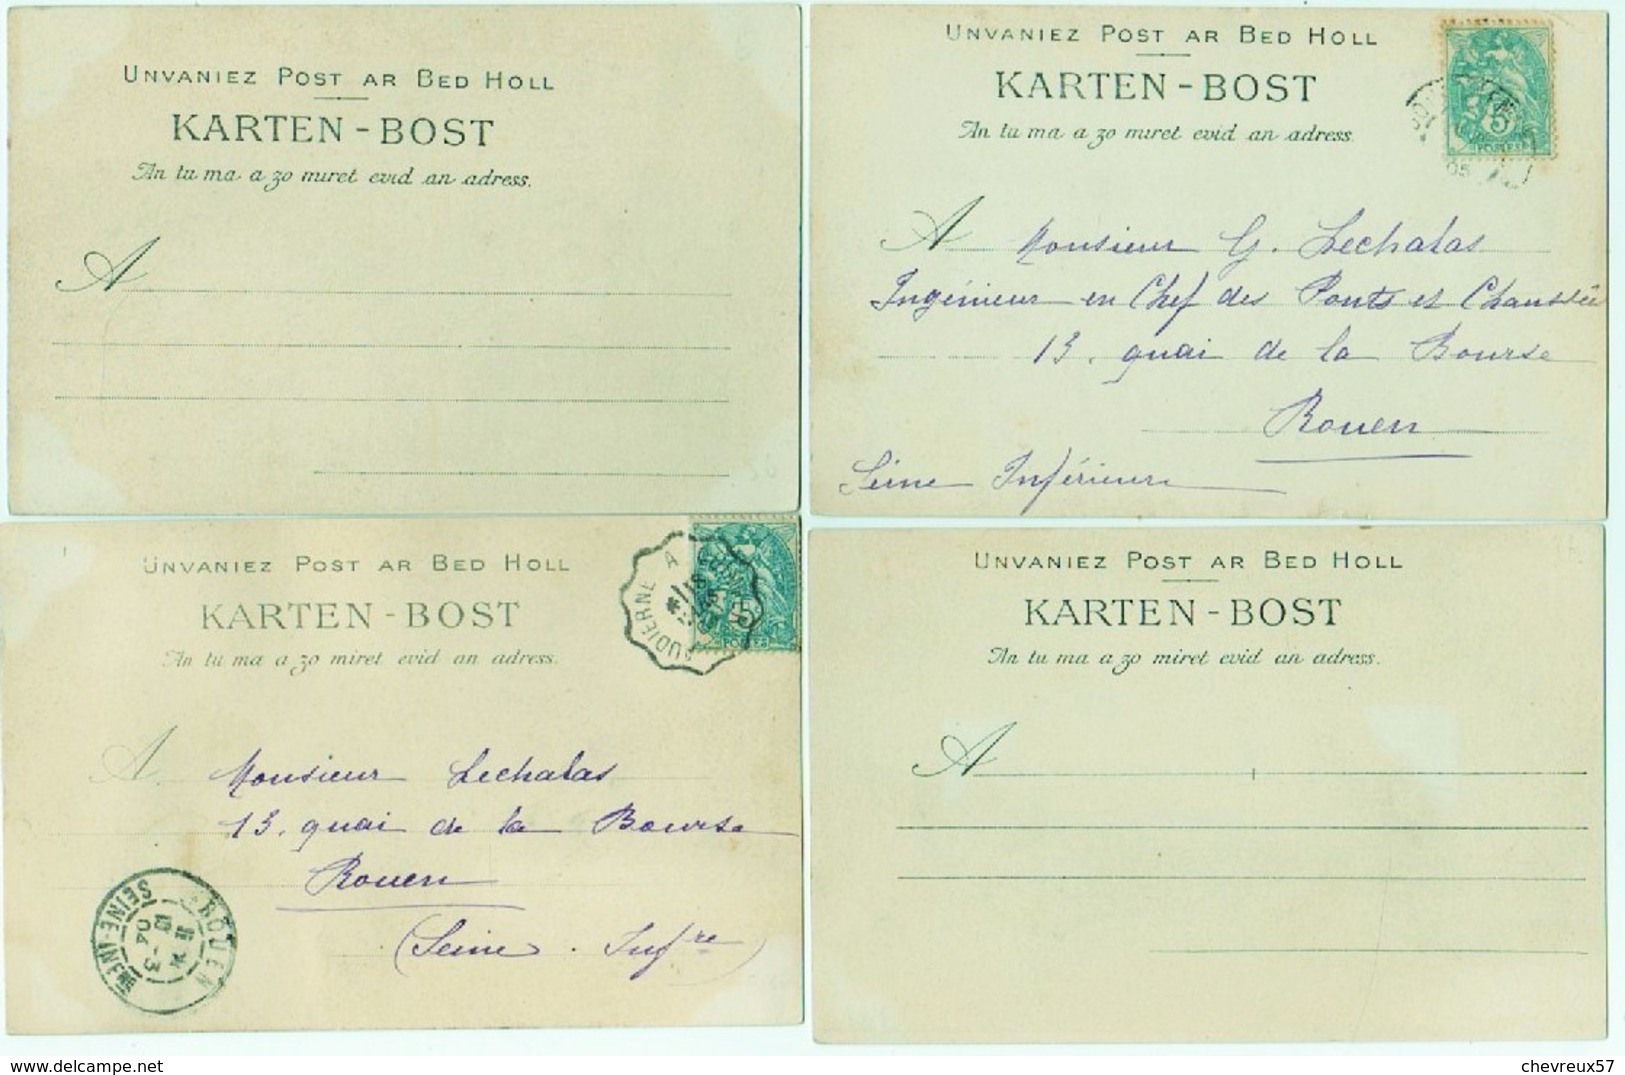 UNVANIEZ POST AR BED HOLL
KARTEN-BOST
An tu ma a zo miret evid an adress.
A
UNVANIEZ POST AR BED HOLL
KARTEN-BOST
An tu ma a zo miret evid an adress.
5
POSTES
05
A Monsieur G. Lechalas
Ingénieur en Chef des Ponts et Chaussée
13, quai de la Bourse
Rouen
Seine Inférieure
UNVANIEZ POST AR BED HOLL
KARTEN-BOST
An tu ma a zo miret evid an adress.
AUDIERNE A
5
POSTES
A Monsieur Lechalas
13, quai de la Bourse
Rouen
(Seine Infre)
ROUEN
SEINE-INFRE
04
UNVANIEZ POST AR BED HOLL
KARTEN-BOST
An tu ma a zo miret evid an adress.
A
delcampe.net
chevreux57